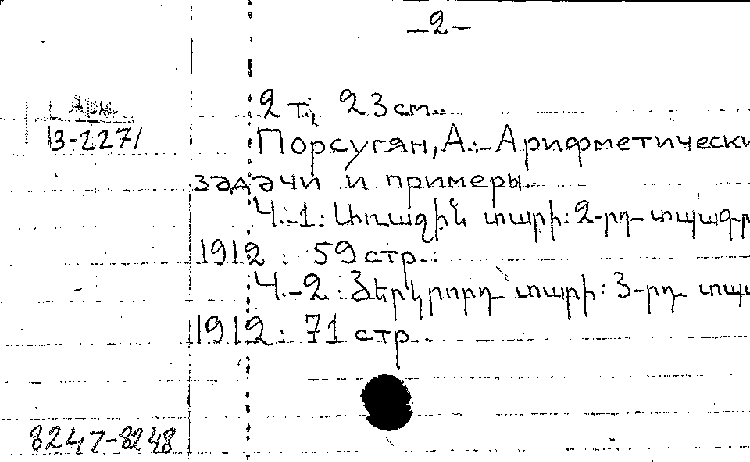 –2–
2 т., 23 см.
Арм.
В-2271
Порсугян, А.- Арифметически
задачи и примеры.
Ч.-1: Առաջին տարի: 2-րդ տպագր
1912. 59 стр.
Ч.-2: Երկրորդ տարի: 3-րդ տպա
1912. 71 стр.
8247-8248